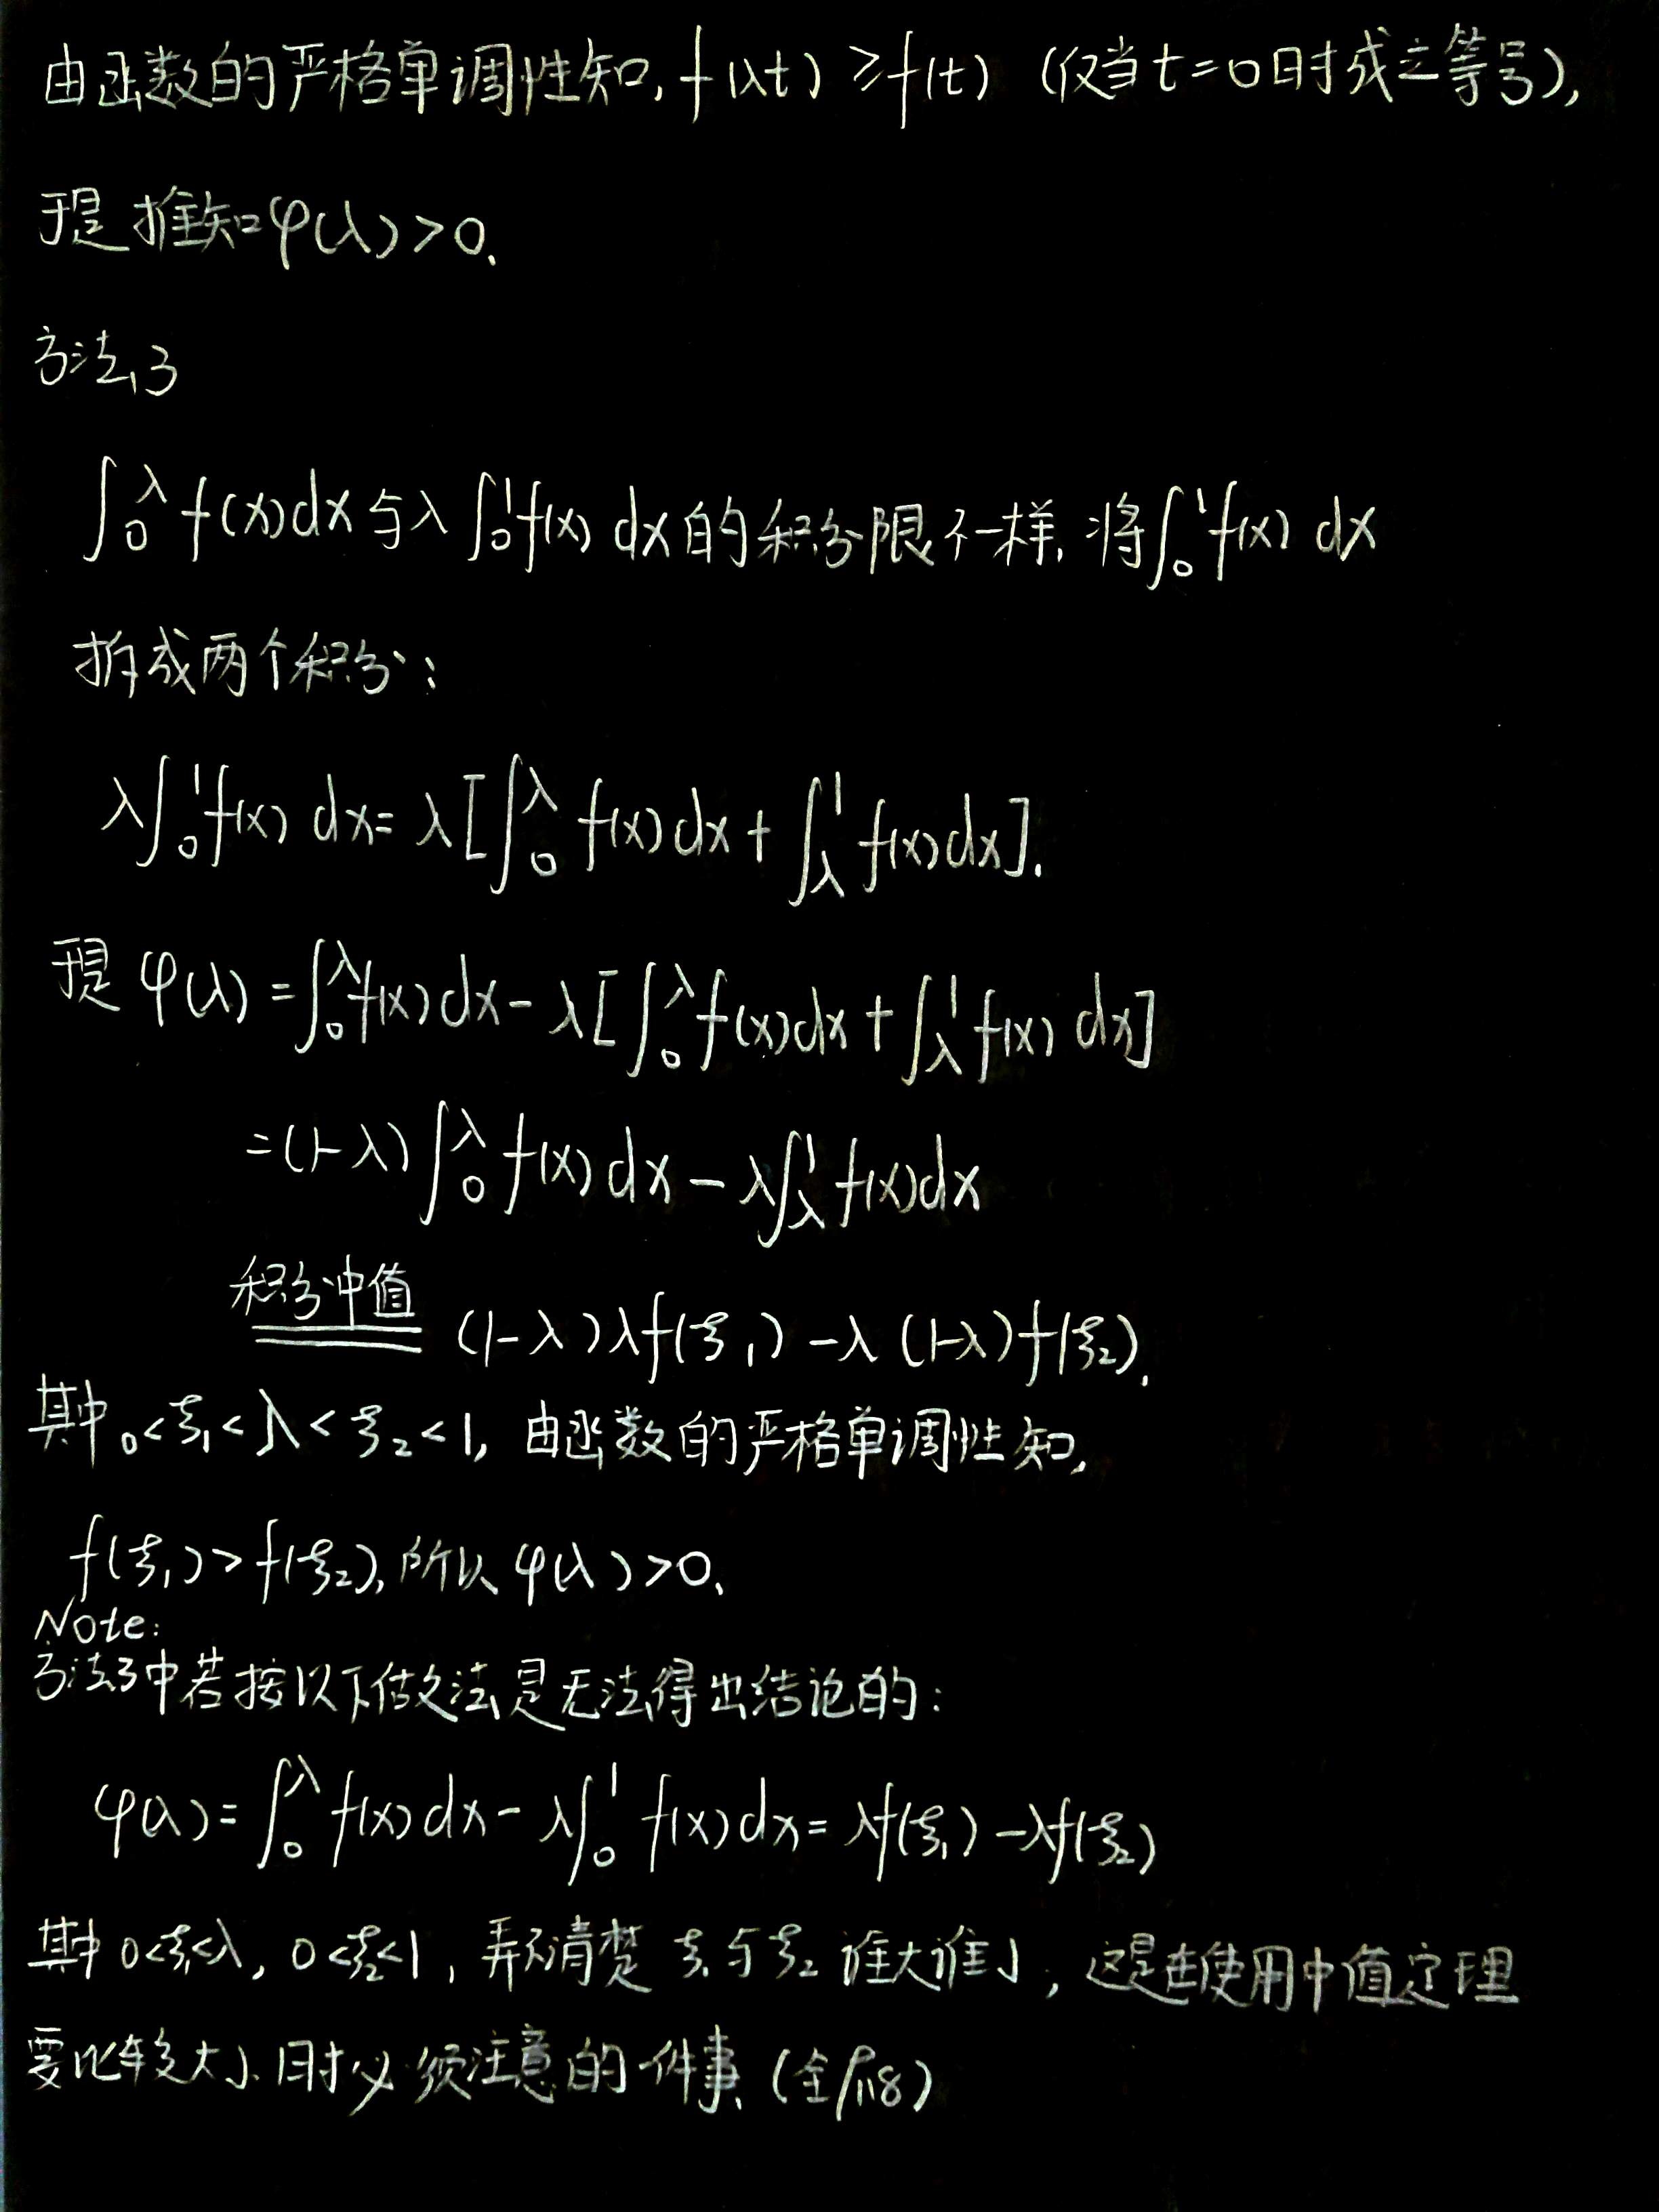 由函数的严格单调性知, f(λt) ≥ f(t) (仅当t=0时成立等号),
于是推知φ(λ)>0.
方法3
∫₀^λ f(x)dx与λ∫₀¹f(x) dx的积分限不一样, 将∫₀¹f(x) dx
拆成两个积分:
λ∫₀¹f(x) dx= λ[∫₀^λ f(x)dx+∫_λ^1 f(x)dx].
于是 φ(λ) =∫₀^λ f(x)dx-λ[∫₀^λ f(x)dx+∫_λ^1 f(x) dx]
=(1-λ)∫₀^λ f(x)dx-λ∫_λ^1 f(x)dx
积分中值
(1-λ)λf(ξ₁)-λ(1-λ)f(ξ₂).
其中0<ξ₁<λ<ξ₂<1, 由函数的严格单调性知,
f(ξ₁)>f(ξ₂), 所以φ(λ)>0.
Note:
方法3中若按以下做法是无法得出结论的:
φ(λ)=∫₀^λ f(x)dx-λ∫₀¹ f(x)dx=λf(ξ₁)-λf(ξ₂)
其中0<ξ₁<λ, 0<ξ₂<1, 弄不清楚ξ₁与ξ₂谁大谁小, 这是在使用中值定理
要比较大小时必须注意的一件事.